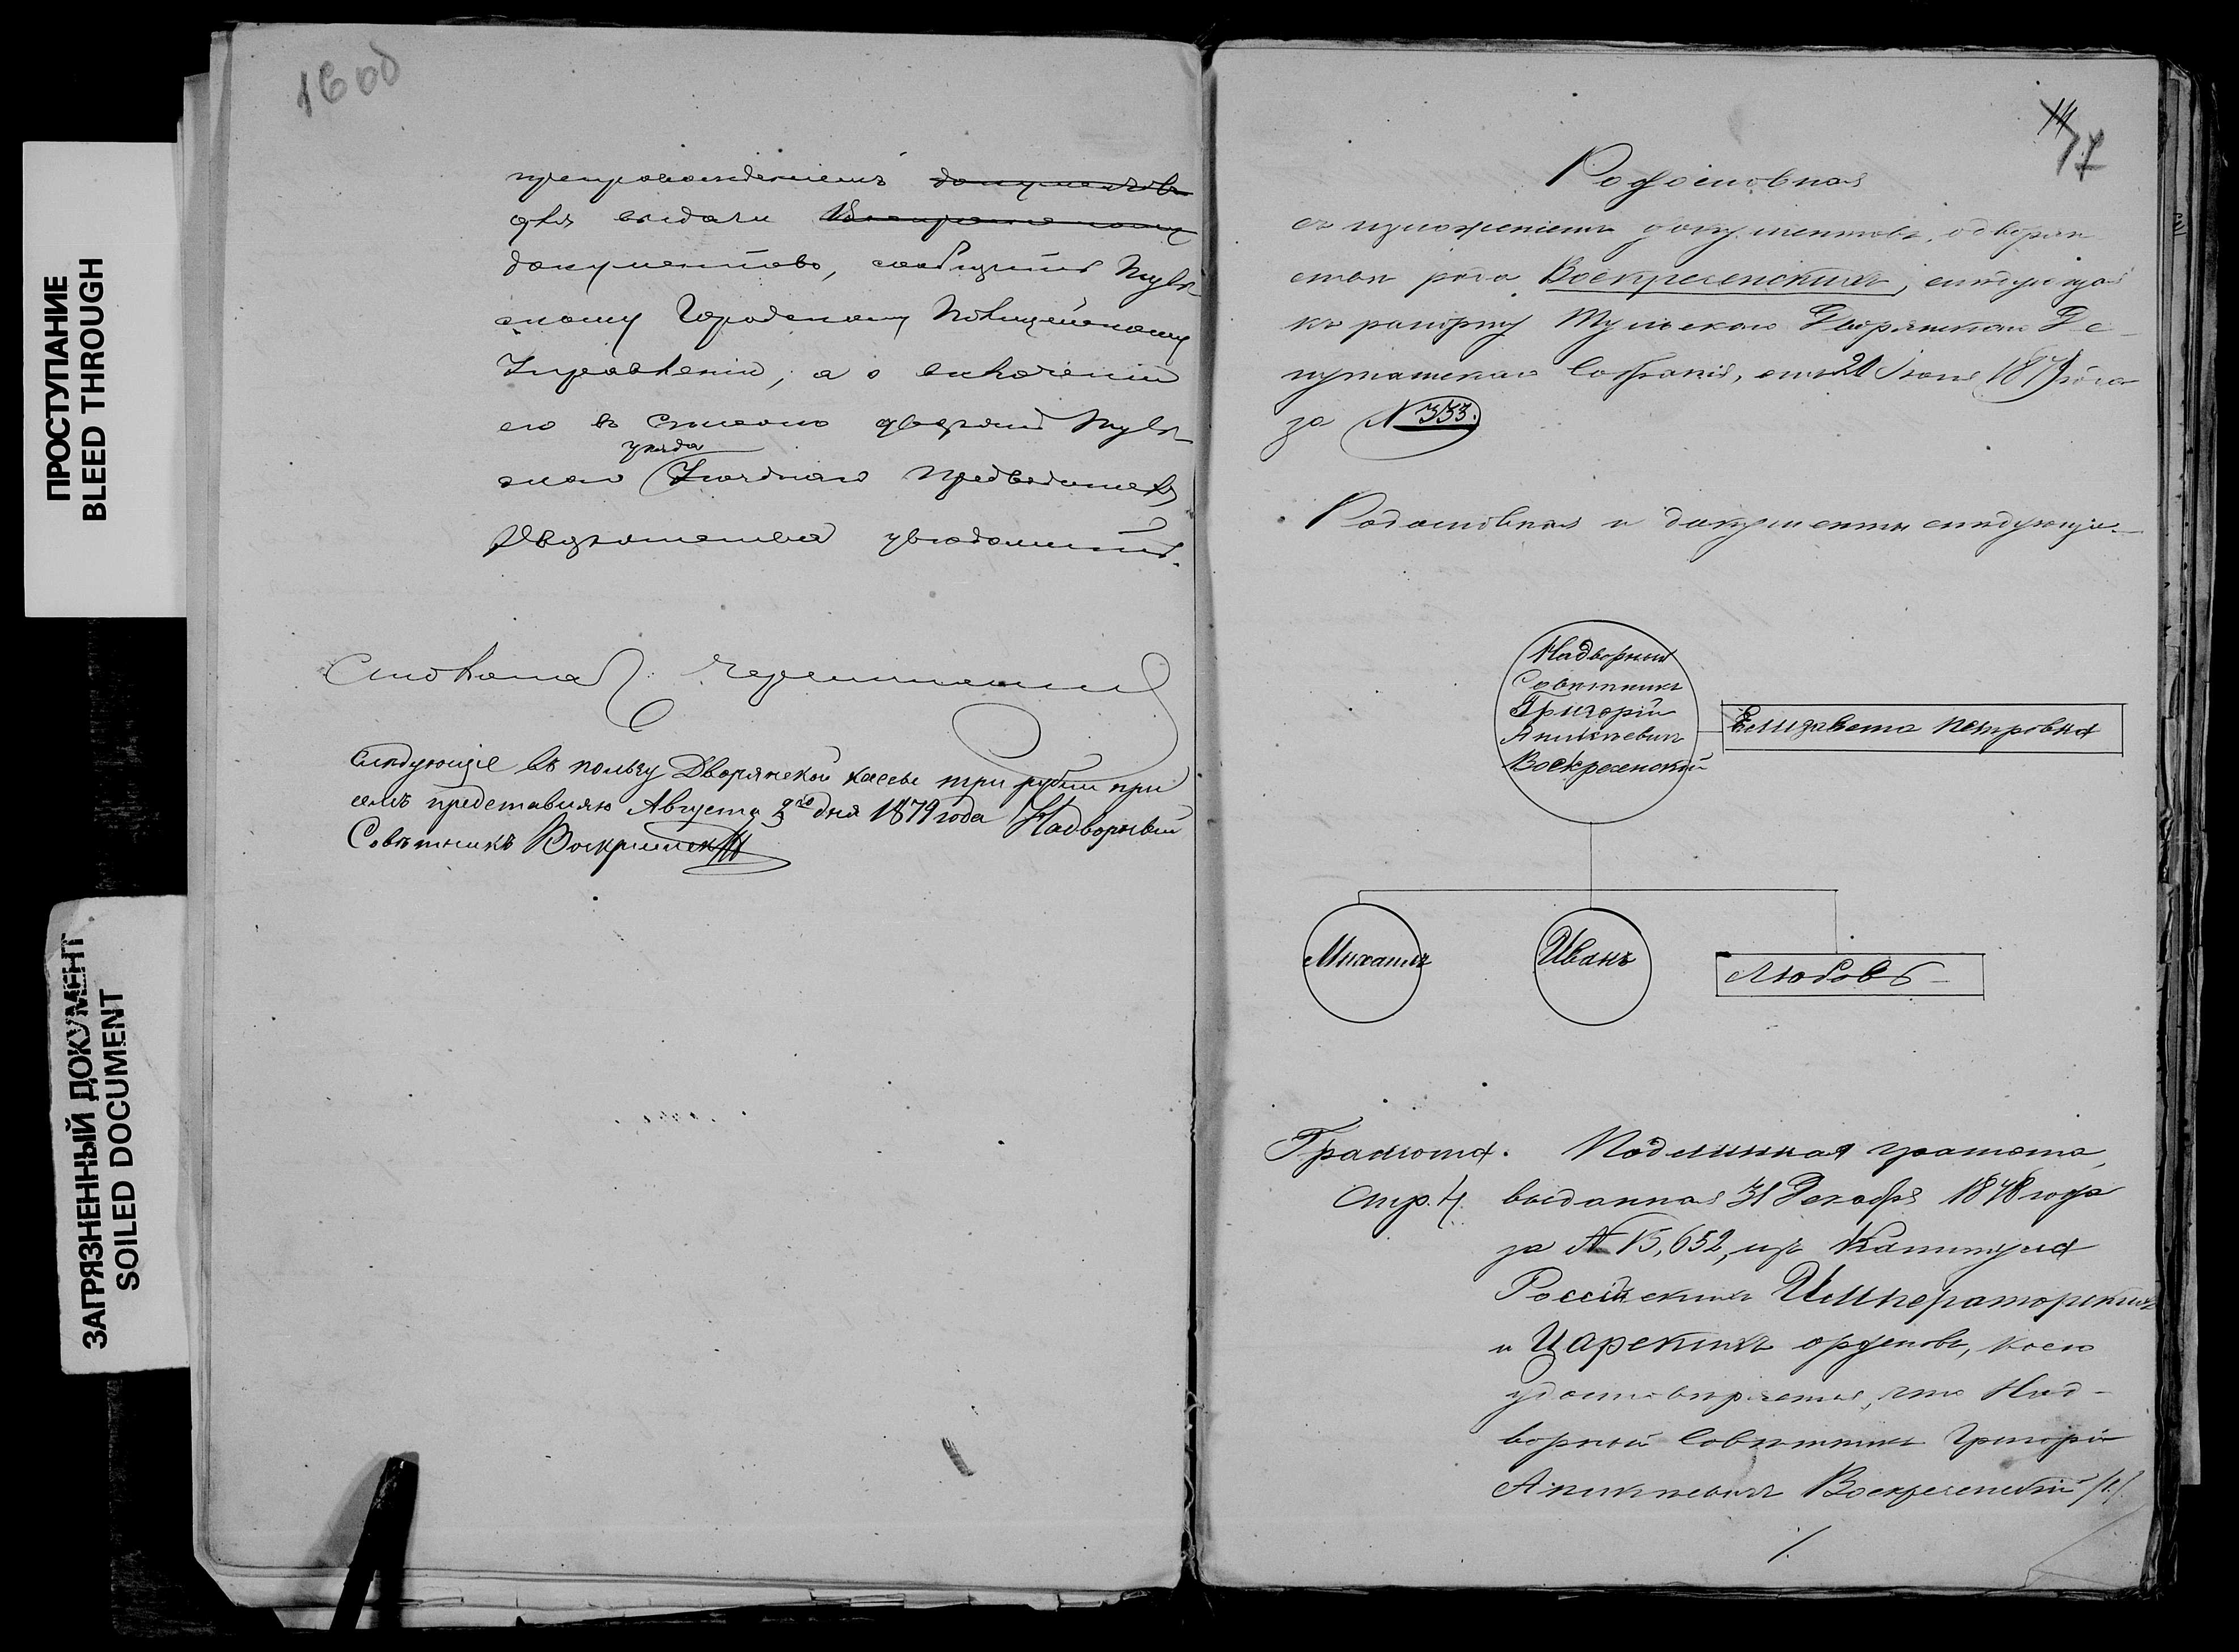 ПРОСТУПАНИЕ
BLEED THROUGH
ЗАГРЯЗНЕННЫЙ ДОКУМЕНТ
SOILED DOCUMENT
16 об
препровожденіемъ документовъ
для выдачи Воскресенскому
документовъ, сообщить Туль-
скому Городскому Полицейскому
Управленію, а о включеніи
его въ списокъ дворянъ Туль-
скаго уѣзда Уѣзднаго Предводителя
Дворянства увѣдомить.
Слѣдующіе въ пользу Дворянской кассы три рубли при
семъ представляю Августа 2го дня 1879 года Надворный
Совѣтникъ Воскресенскій
14
17
Родословная
съ изложеніемъ документовъ, о дворян
ствѣ рода Воскресенскихъ, слѣдующая
къ рапорту Тульскаго Дворянскаго Де-
путатскаго Собранія, отъ 20 Іюня 1879 года
за № 353.
Родословная и документы слѣдующіе
Надворный
Совѣтникъ
Григорій
Аникѣевичъ
Воскресенскій
Елизавета Петровна
Михаилъ
Иванъ
Любовь
Грамота. Подлинная грамота,
стр. 4. выданная 31 Декабря 1878 года
за № 15,652, изъ Капитула
Россійскихъ Императорскихъ
и Царскихъ орденовъ, коею
удостовѣряется, что Над-
ворный Совѣтникъ Григорій
Аникѣевичъ Воскресенскій /1/
1.